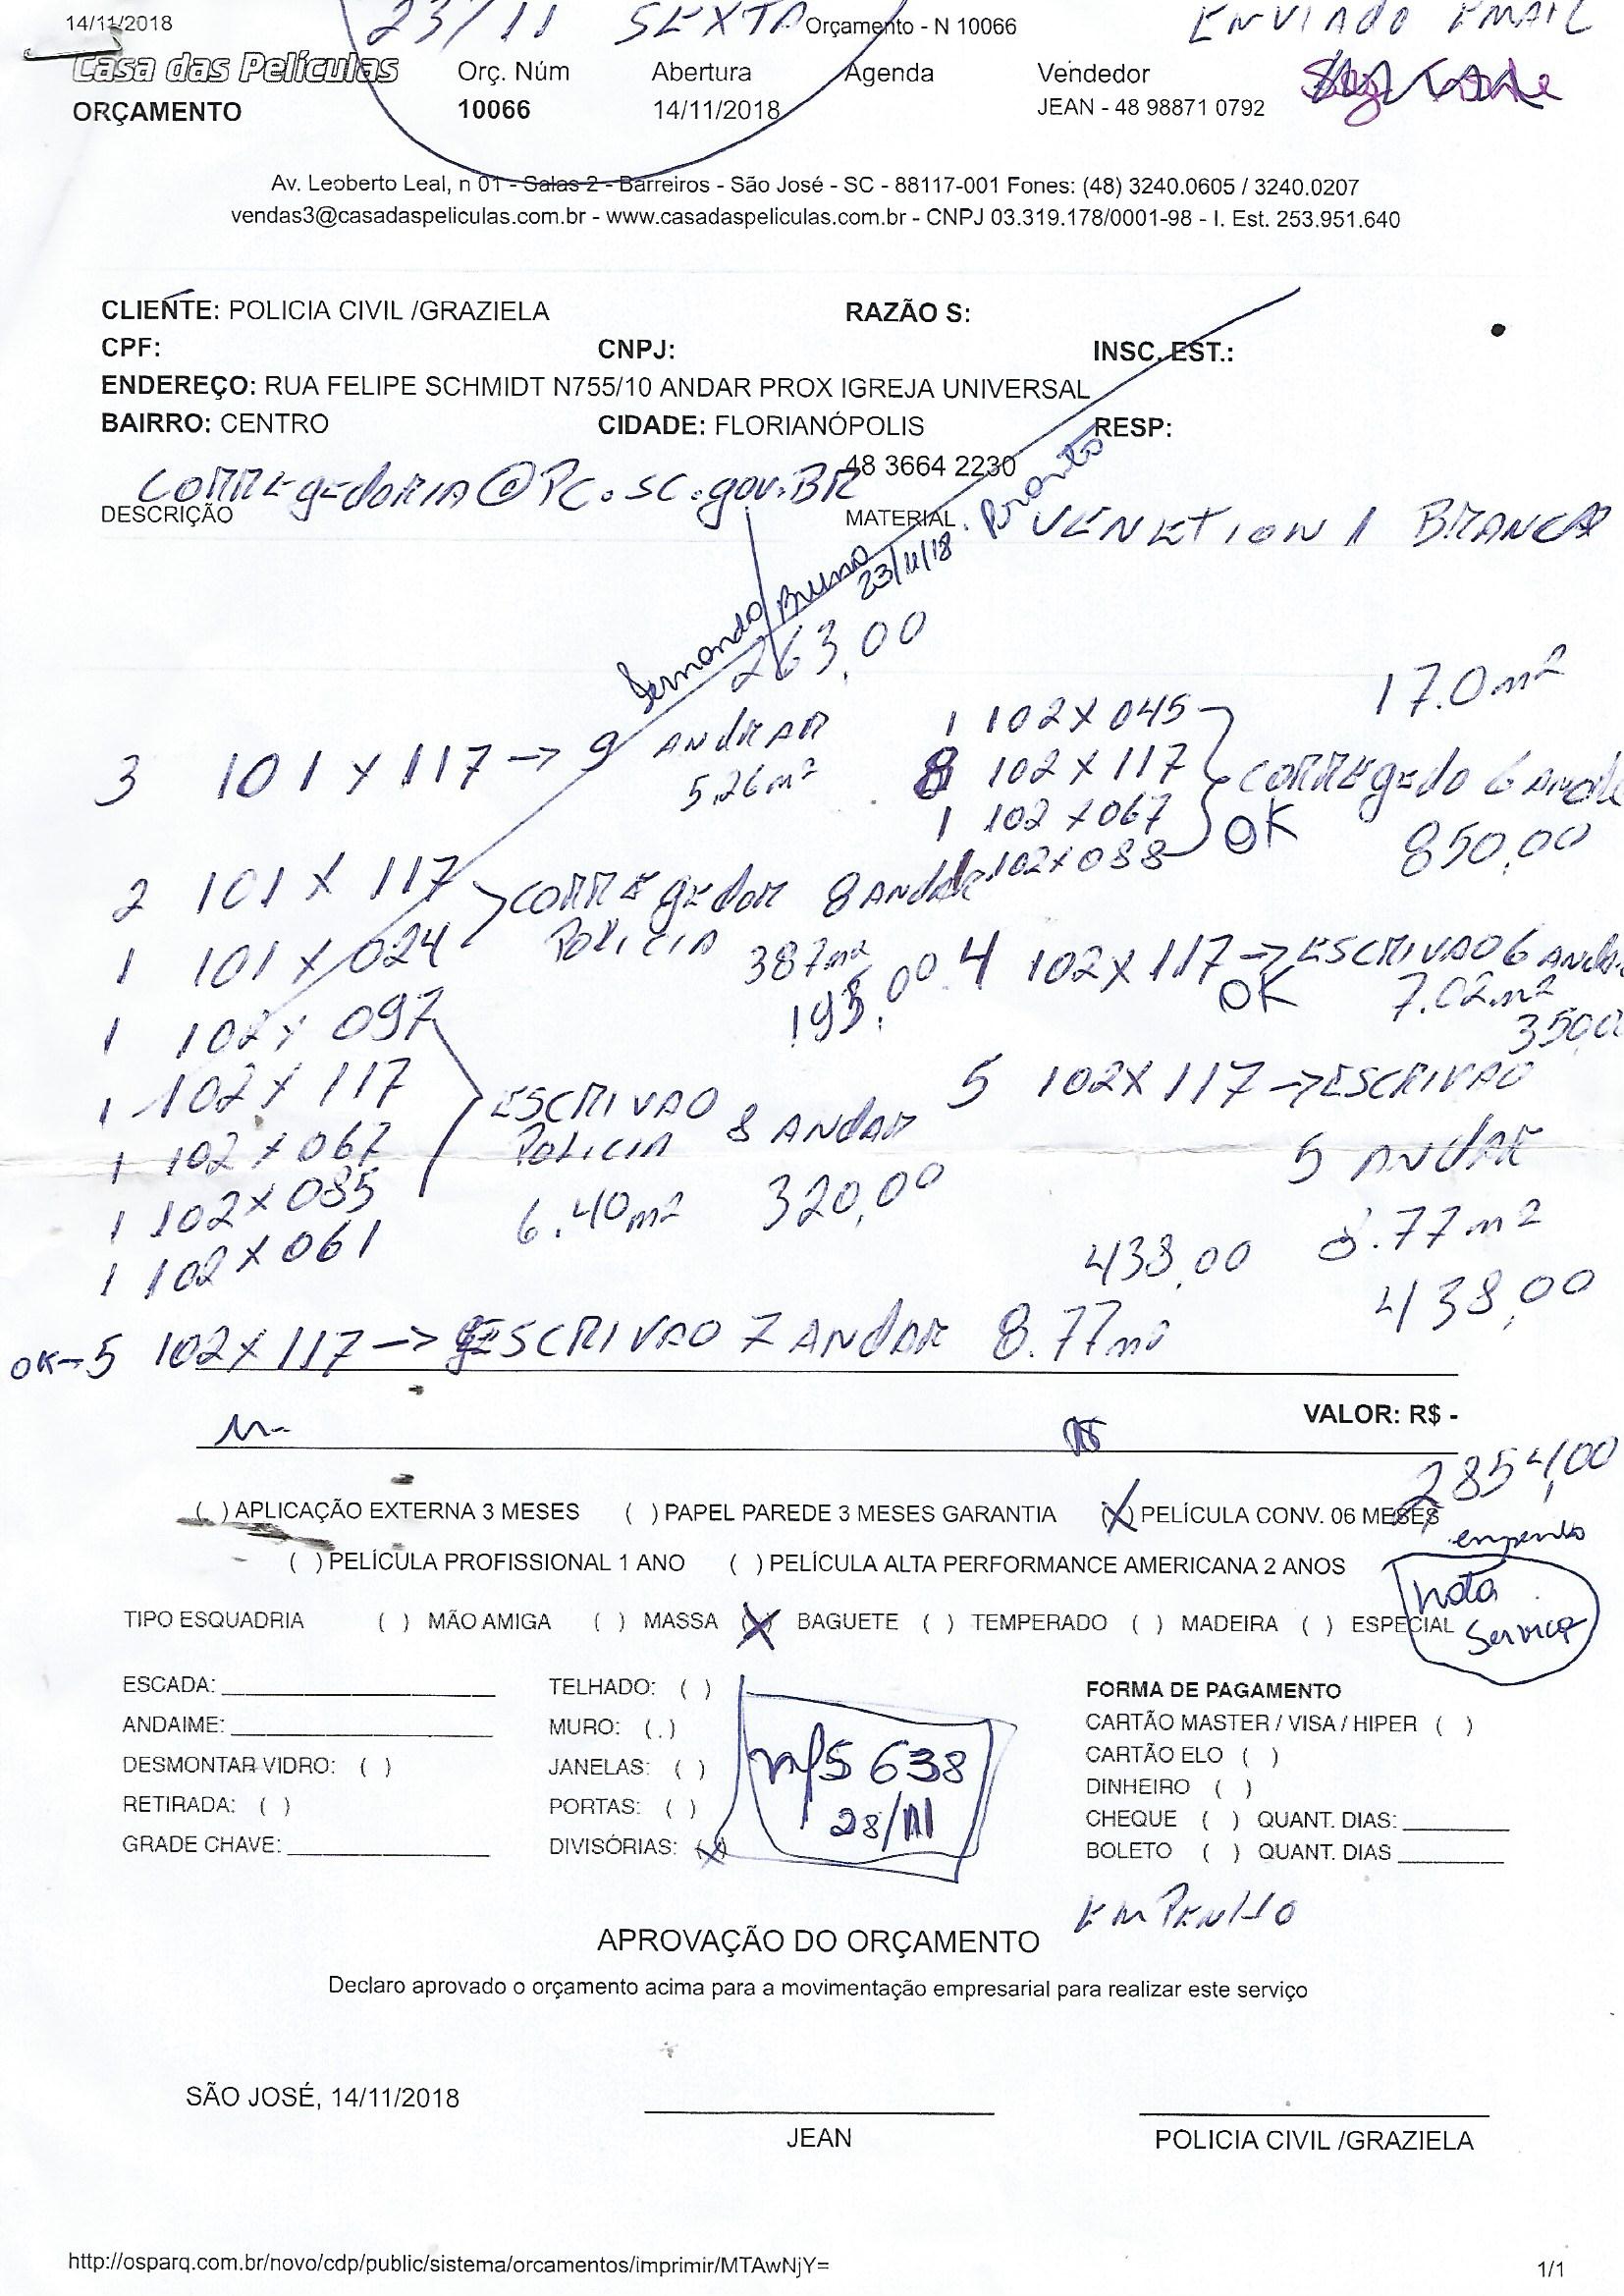 14/11/2018 23/11 SEXTA Orçamento - N 10066 ENVIADO EMAIL
Casa das Películas Orç. Núm Abertura Agenda Vendedor
ORÇAMENTO 10066 14/11/2018 JEAN - 48 98871 0792
Av. Leoberto Leal, n 01 - Salas 2 - Barreiros - São José - SC - 88117-001 Fones: (48) 3240.0605 / 3240.0207
vendas3@casadaspeliculas.com.br - www.casadaspeliculas.com.br - CNPJ 03.319.178/0001-98 - I. Est. 253.951.640
CLIENTE: POLICIA CIVIL /GRAZIELA RAZÃO S:
CPF: CNPJ: INSC. EST.:
ENDEREÇO: RUA FELIPE SCHMIDT N755/10 ANDAR PROX IGREJA UNIVERSAL
BAIRRO: CENTRO CIDADE: FLORIANÓPOLIS RESP:
48 3664 2230
CORREgedoRIA@PC.SC.gov.BR
DESCRIÇÃO MATERIAL VENETION 1 BRANCA
Fernando/Bruno 23/11/18. Pronto
263,00
3 101 x 117 -> 9 ANDAR
5,26m²
1 102 X 045 17.0m²
8 102 X 117 CORREgedo 6 Andar
1 102 X 067 OK 850,00
1 102 X 088
2 101 X 117 CORREgEdoR 8 ANdAR
1 101 X 024 POLICIA 387m²
195,00
4 102 X 117 -> ESCRIVAO 6 Andar
OK 7.02m²
350,00
1 102 X 097
1 102 X 117 ESCRIVAO 8 ANdAR
1 102 X 067 POLICIA
1 102 X 085 6.40m² 320,00
1 102 X 061
5 102X 117 -> ESCRIVAO
5 ANdAR
8.77m²
438,00
438,00
OK-5 102 X 117 -> ESCRIVAO 7 ANdAR 8.77m²
VALOR: R$ -
2854,00
( ) APLICAÇÃO EXTERNA 3 MESES ( ) PAPEL PAREDE 3 MESES GARANTIA (X) PELÍCULA CONV. 06 MESES
empenho
( ) PELÍCULA PROFISSIONAL 1 ANO ( ) PELÍCULA ALTA PERFORMANCE AMERICANA 2 ANOS
nota
Serviço
TIPO ESQUADRIA ( ) MÃO AMIGA ( ) MASSA (X) BAGUETE ( ) TEMPERADO ( ) MADEIRA ( ) ESPECIAL
ESCADA: TELHADO: ( ) FORMA DE PAGAMENTO
ANDAIME: MURO: ( ) CARTÃO MASTER / VISA / HIPER ( )
DESMONTAR VIDRO: ( ) JANELAS: ( ) CARTÃO ELO ( )
RETIRADA: ( ) PORTAS: ( ) DINHEIRO ( )
GRADE CHAVE: DIVISÓRIAS: (X) CHEQUE ( ) QUANT. DIAS:
BOLETO ( ) QUANT. DIAS
nfs 638
28/11
EMPENHO
APROVAÇÃO DO ORÇAMENTO
Declaro aprovado o orçamento acima para a movimentação empresarial para realizar este serviço
SÃO JOSÉ, 14/11/2018
JEAN POLICIA CIVIL /GRAZIELA
http://osparq.com.br/novo/cdp/public/sistema/orcamentos/imprimir/MTAwNjY= 1/1